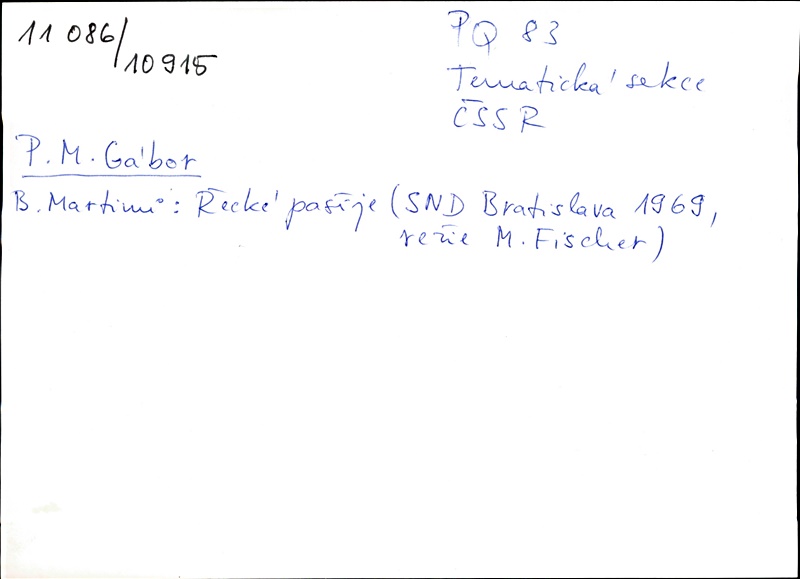 11 086/
10915
PQ 83
Tematická sekce
ČSSR
P. M. Gábor
B. Martinů: Řecké pašije (SND Bratislava 1969,
režie M. Fischer)